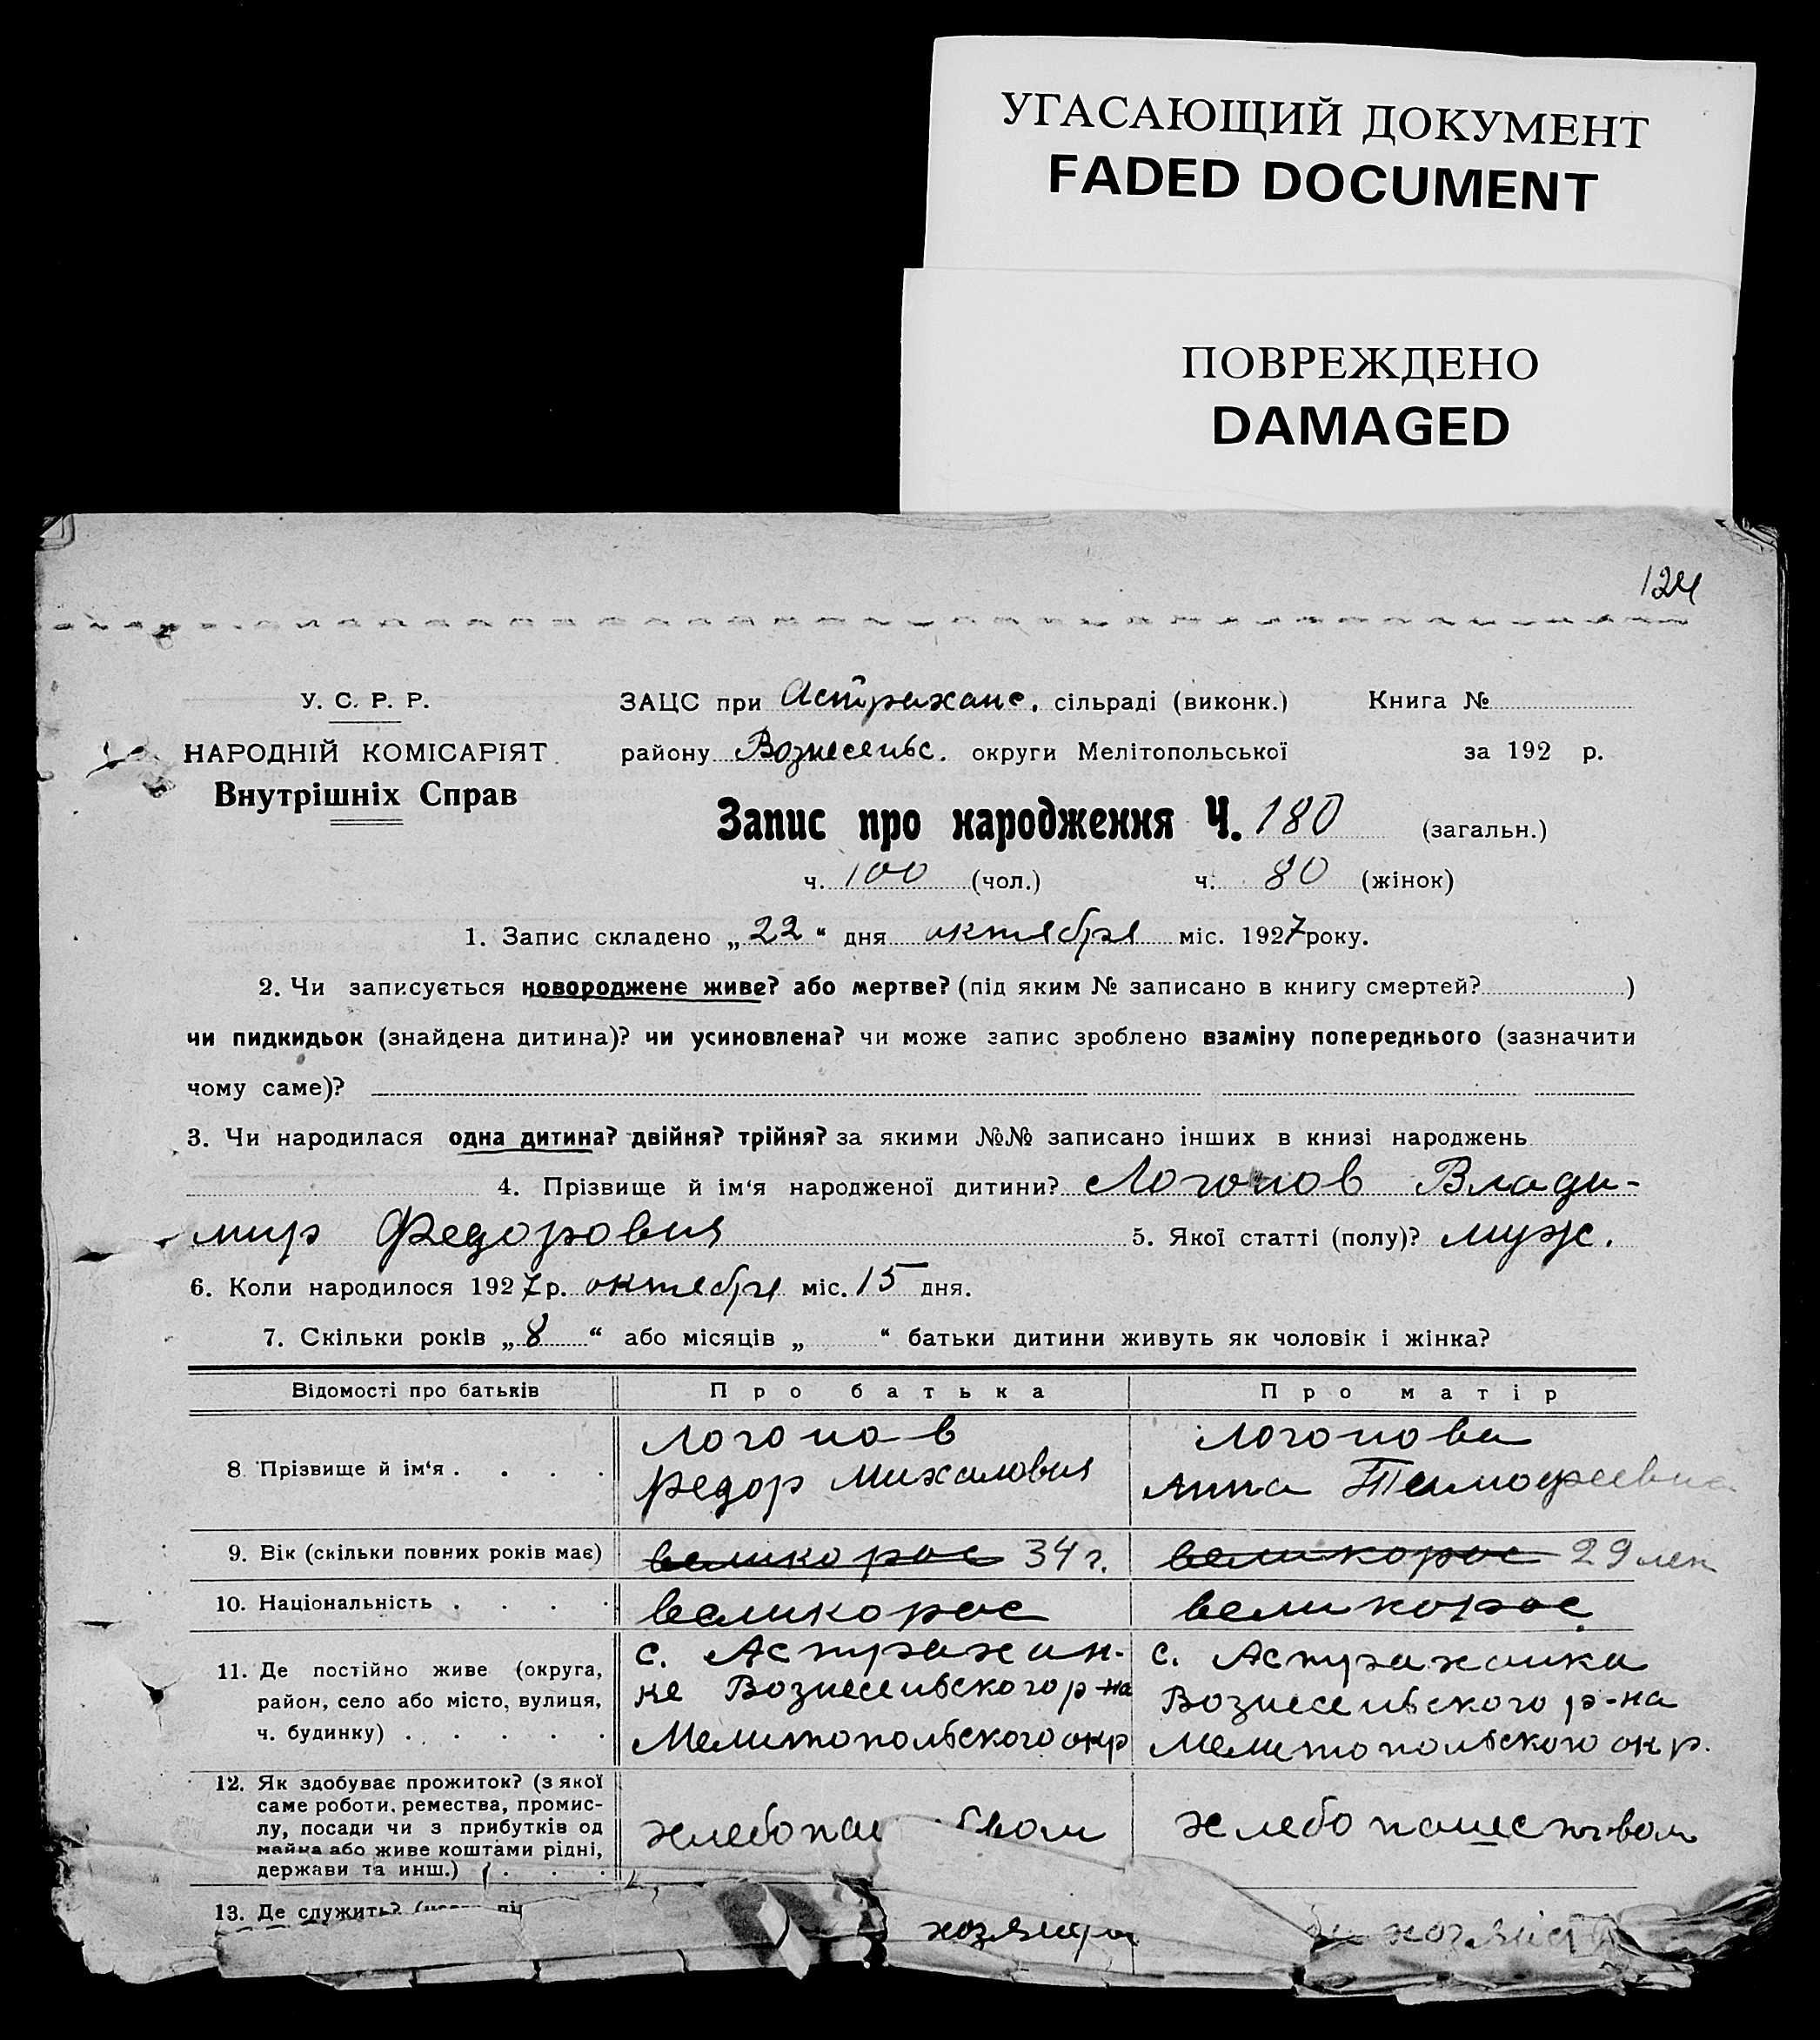 УГАСАЮЩИЙ ДОКУМЕНТ
FADED DOCUMENT
ПОВРЕЖДЕНО
DAMAGED
124
У. С. Р. Р.
НАРОДНІЙ КОМІСАРІЯТ
Внутрішніх Справ
ЗАЦС при Астрахане. сільраді (виконк.) Книга №
району Вознесеньс. округи Мелітопольської за 192 р.
Запис про народження Ч. 180 (загальн.)
ч. 100 (чол.) ч. 80 (жінок)
1. Запис складено „22“ дня октября міс. 1927 року.
2. Чи записується новороджене живе? або мертве? (під яким № записано в книгу смертей? )
чи пидкидьок (знайдена дитина)? чи усиновлена? чи може запис зроблено взаміну попереднього (зазначити
чому саме)?
3. Чи народилася одна дитина? двійня? трійня? за якими №№ записано інших в книзі народжень
4. Прізвище й ім‘я народженої дитини? Логонов Влади-
мир Федорович 5. Якої статті (полу)? муж.
6. Коли народилося 1927 р. октября міс. 15 дня.
7. Скільки років „8“ або місяців „ “ батьки дитини живуть як чоловік і жінка?
Відомості про батьків Про батька Про матір
8. Прізвище й ім‘я . . . . Логонов Федор Михалович Логонова Анна Тимофеевна
9. Вік (скільки повних років має) великорос 34 г. великорос 29 лет
10. Національність . . . . великорос великорос
11. Де постійно живе (округа, с. Астрахан- с. Астраханка
район, село або місто, вулиця, ке Вознесеньского р-на Вознесеньского р-на
ч. будинку) . . . . . Мелитопольского окр Мелитопольского окр.
12. Як здобуває прожиток? (з якої
саме роботи, ремества, промис-
лу, посади чи з прибутків од хлебопаш хлебопашеством
майна або живе коштами рідні,
держави та инш.) . . .
13. Де служить?